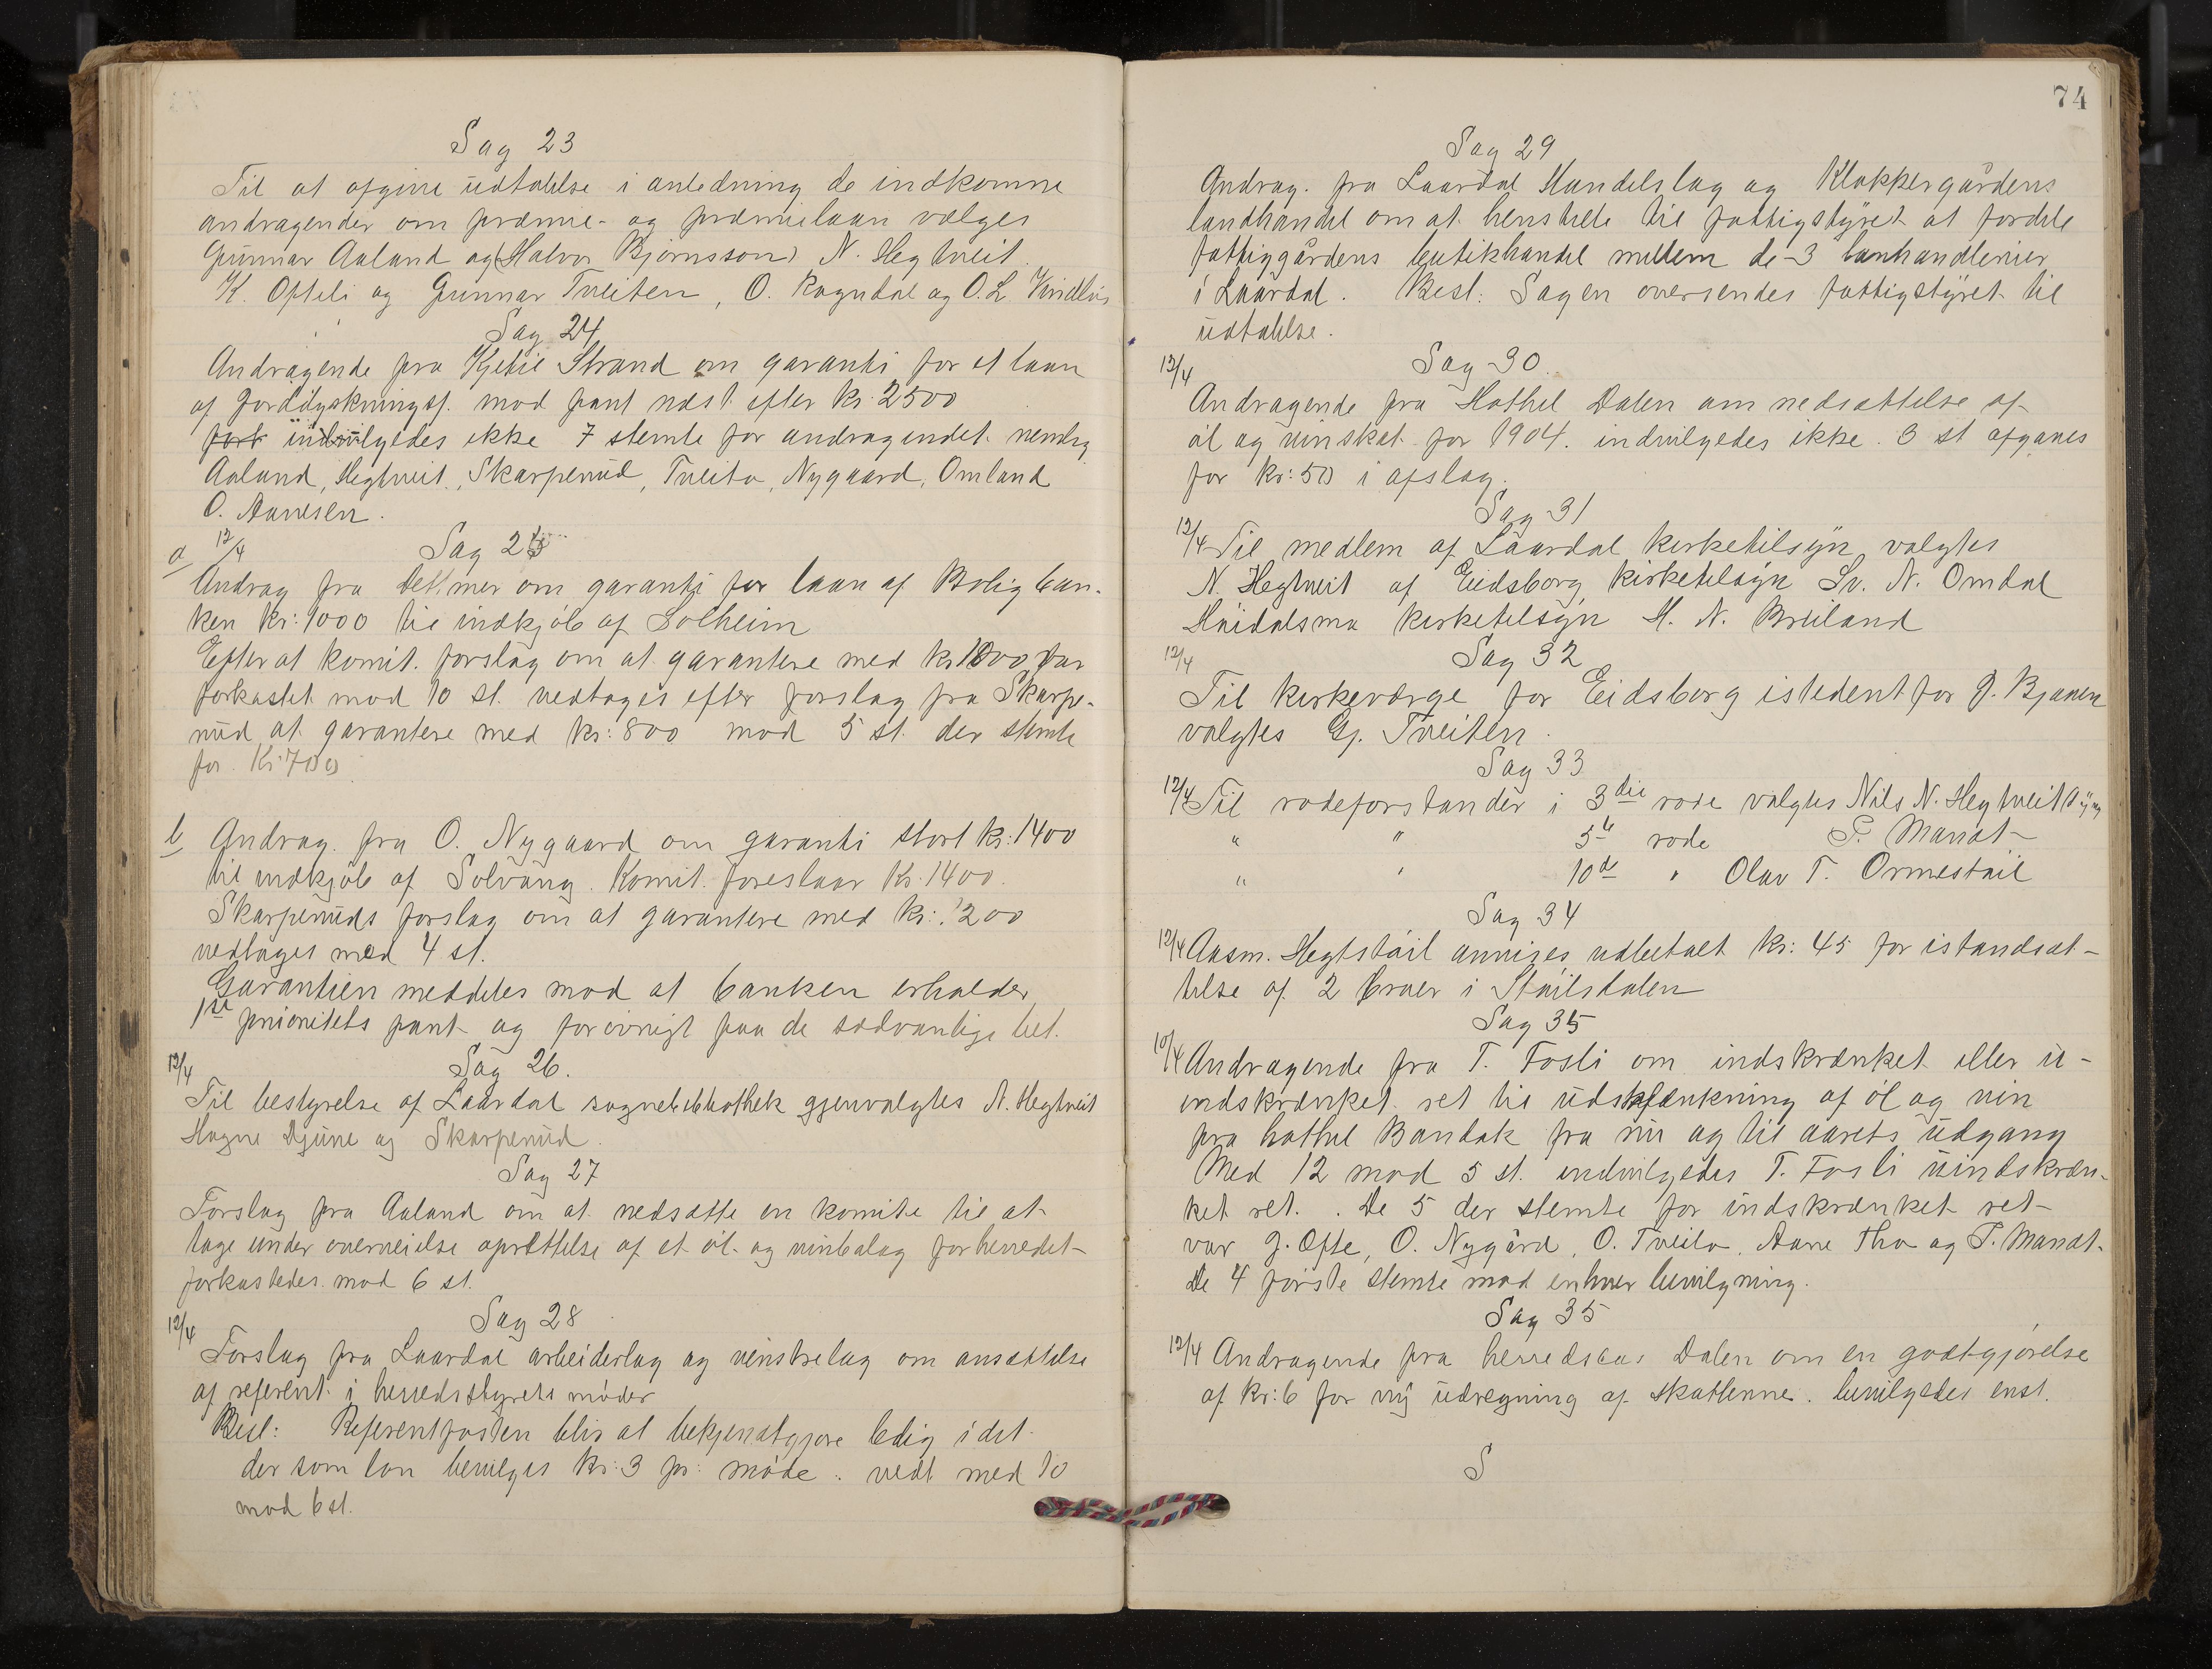 Sag 23
Til at afgive udtalelse i anledning de indkomne
andragender om præmie- og præmielaan vælges
Gunnar Aaland og (Halvor Bjørnsson) N. Hegtveit
K. Ofteli og Gunnar Tveiten, O. Rogndal og O. L. Vindlus
Sag 24
Andragende fra Kjetil Strand om garanti for et laan
af Jorddyrkningsf. mod pant næst efter kr. 2500
indvilgedes ikke 7 stemte for andragendet nemlig
Aaland, Hegtveit, Skarpenud, Tveito, Nygaard, Omland
O. Aanesen.
a 12/4 Sag 25
Andrag fra Dettmer om garanti for laan af Boligban-
ken kr: 1000 til indkjøb af Solheim
Efter at komit. forslag om at garantere med kr 1000 var
forkastet mod 10 st. vedtages efter forslag fra Skarpe-
nud at garantere med kr: 800 mod 5 st. der stemte
for Kr 700
b Andrag. fra O. Nygaard om garanti stort kr: 1400
til indkjøb af Solvang. Komit. foreslaar Kr. 1400.
Skarpenuds forslag om at garantere med kr: 1200
vedtages mod 4 st.
Garantien meddeles mod at banken erholder
1ste prioritets pant og forøvrigt paa de sædvanlige bet.
12/4 Sag 26.
Til bestyrelse af Laardal sognebibliothek gjenvalgtes N. Hegtveit
Hagne Djune og Skarpenud.
Sag 27
Forslag fra Aaland om at nedsætte en komite til at
tage under overveielse oprettelse af et øl- og vinbolag for herredet
forkastedes mod 6 st.
12/4 Sag 28
Forslag fra Laardal arbeiderlag og venstrelag om ansættelse
af referent i herredsstyrets møder
Besl: Referentposten blir at bekjendtgjøre ledig idet
der som løn bevilges kr. 3 pr. møde. vedt med 10
mod 6 st.
74
Sag 29
Andrag. fra Laardal Handelslag og Klokkergårdens
landhandel om at henstille til fattigstyret at fordele
fattiggårdens butikhandel mellem de 3 lanhandlerier
i Laardal. Besl: Sagen oversendes fattigstyret til
udtalelse.
12/4 Sag 30.
Andragende fra Hothel Dalen om nedsættelse af
øl og vinskat for 1904. indvilgedes ikke. 3 st afgaves
for kr: 50 i afslag.
Sag 31
12/4 Til medlem af Laardal kirketilsyn valgtes
N. Hegtveit af Eidsborg kirketilsyn Sv. N. Omdal
Høidalsmo kirketilsyn H. N. Breiland
12/4 Sag 32
Til kirkeværge for Eidsborg istedentfor G. Bjaaen
valgtes Gj. Tveiten.
Sag 33
12/4 Til rodeforstander i 3die rode valgtes Nils N. Hegtveit
" " 5te rode P. Mandt
" " 10de " Olav T. Ormestøil
Sag 34
12/4 Aasm. Hegtstøil anvises udbetalt kr: 45 for istandsæt-
telse af 2 broer i Støilsdalen
Sag 35
10/4 Andragende fra T. Fosli om indskrænket eller u-
indskrænket ret til udskjænkning af øl og vin
fra hothel Bandak fra nu og til aarets udgang
Med 12 mod 5 st. indvilgedes T. Fosli uindskræn-
ket ret. . De 5 der stemte for indskrænket ret
var G. Ofte, O. Nygård, O. Tveito, Aane Tho og P. Mandt.
De 4 første stemte mod enhver bevilgning.
Sag 35
12/4 Andragende fra herredskas. Dalen om en godtgjørelse
af kr: 6 for ny udregning af skatterne. bevilgedes enst.
S